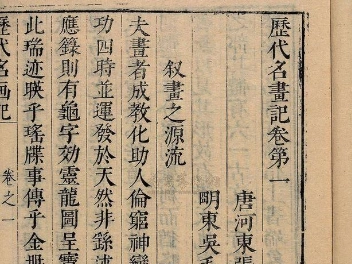 歷代名畫記卷第一
唐河東張
明東吳毛
叙畫之源流
夫畫者成教化助人倫窮神變
功四時並運發於天然非繇述
應籙則有龜字効靈龍圖呈寶
此瑞迹暎乎瑤牒事傳乎金冊
歷代名画記
卷之一